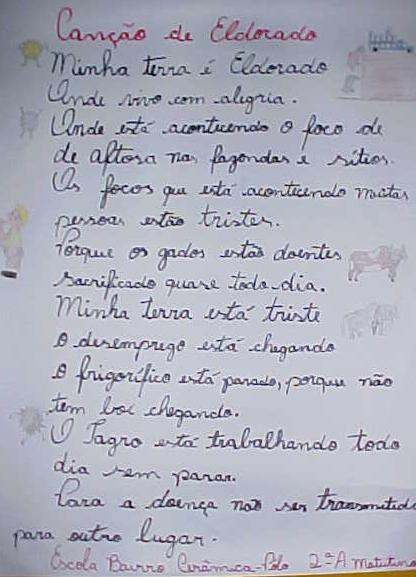 Canção de Eldorado
Minha terra é Eldorado
Onde vivo com alegria.
Onde está acontecendo o foco de
de aftosa nas fazendas e sítios.
Os focos que está acontecendo muitas
pessoas estão tristes.
Porque os gados estão doentes
sacrificado quase todo dia.
Minha terra está triste
O desemprego está chegando
O frigorífico está parado, porque não
tem boi chegando.
O Iagro está trabalhando todo
dia sem parar.
Para a doença não ser transmitida
para outro lugar.
Escola Bairro Cerâmica-Pólo 2ª A Matutino